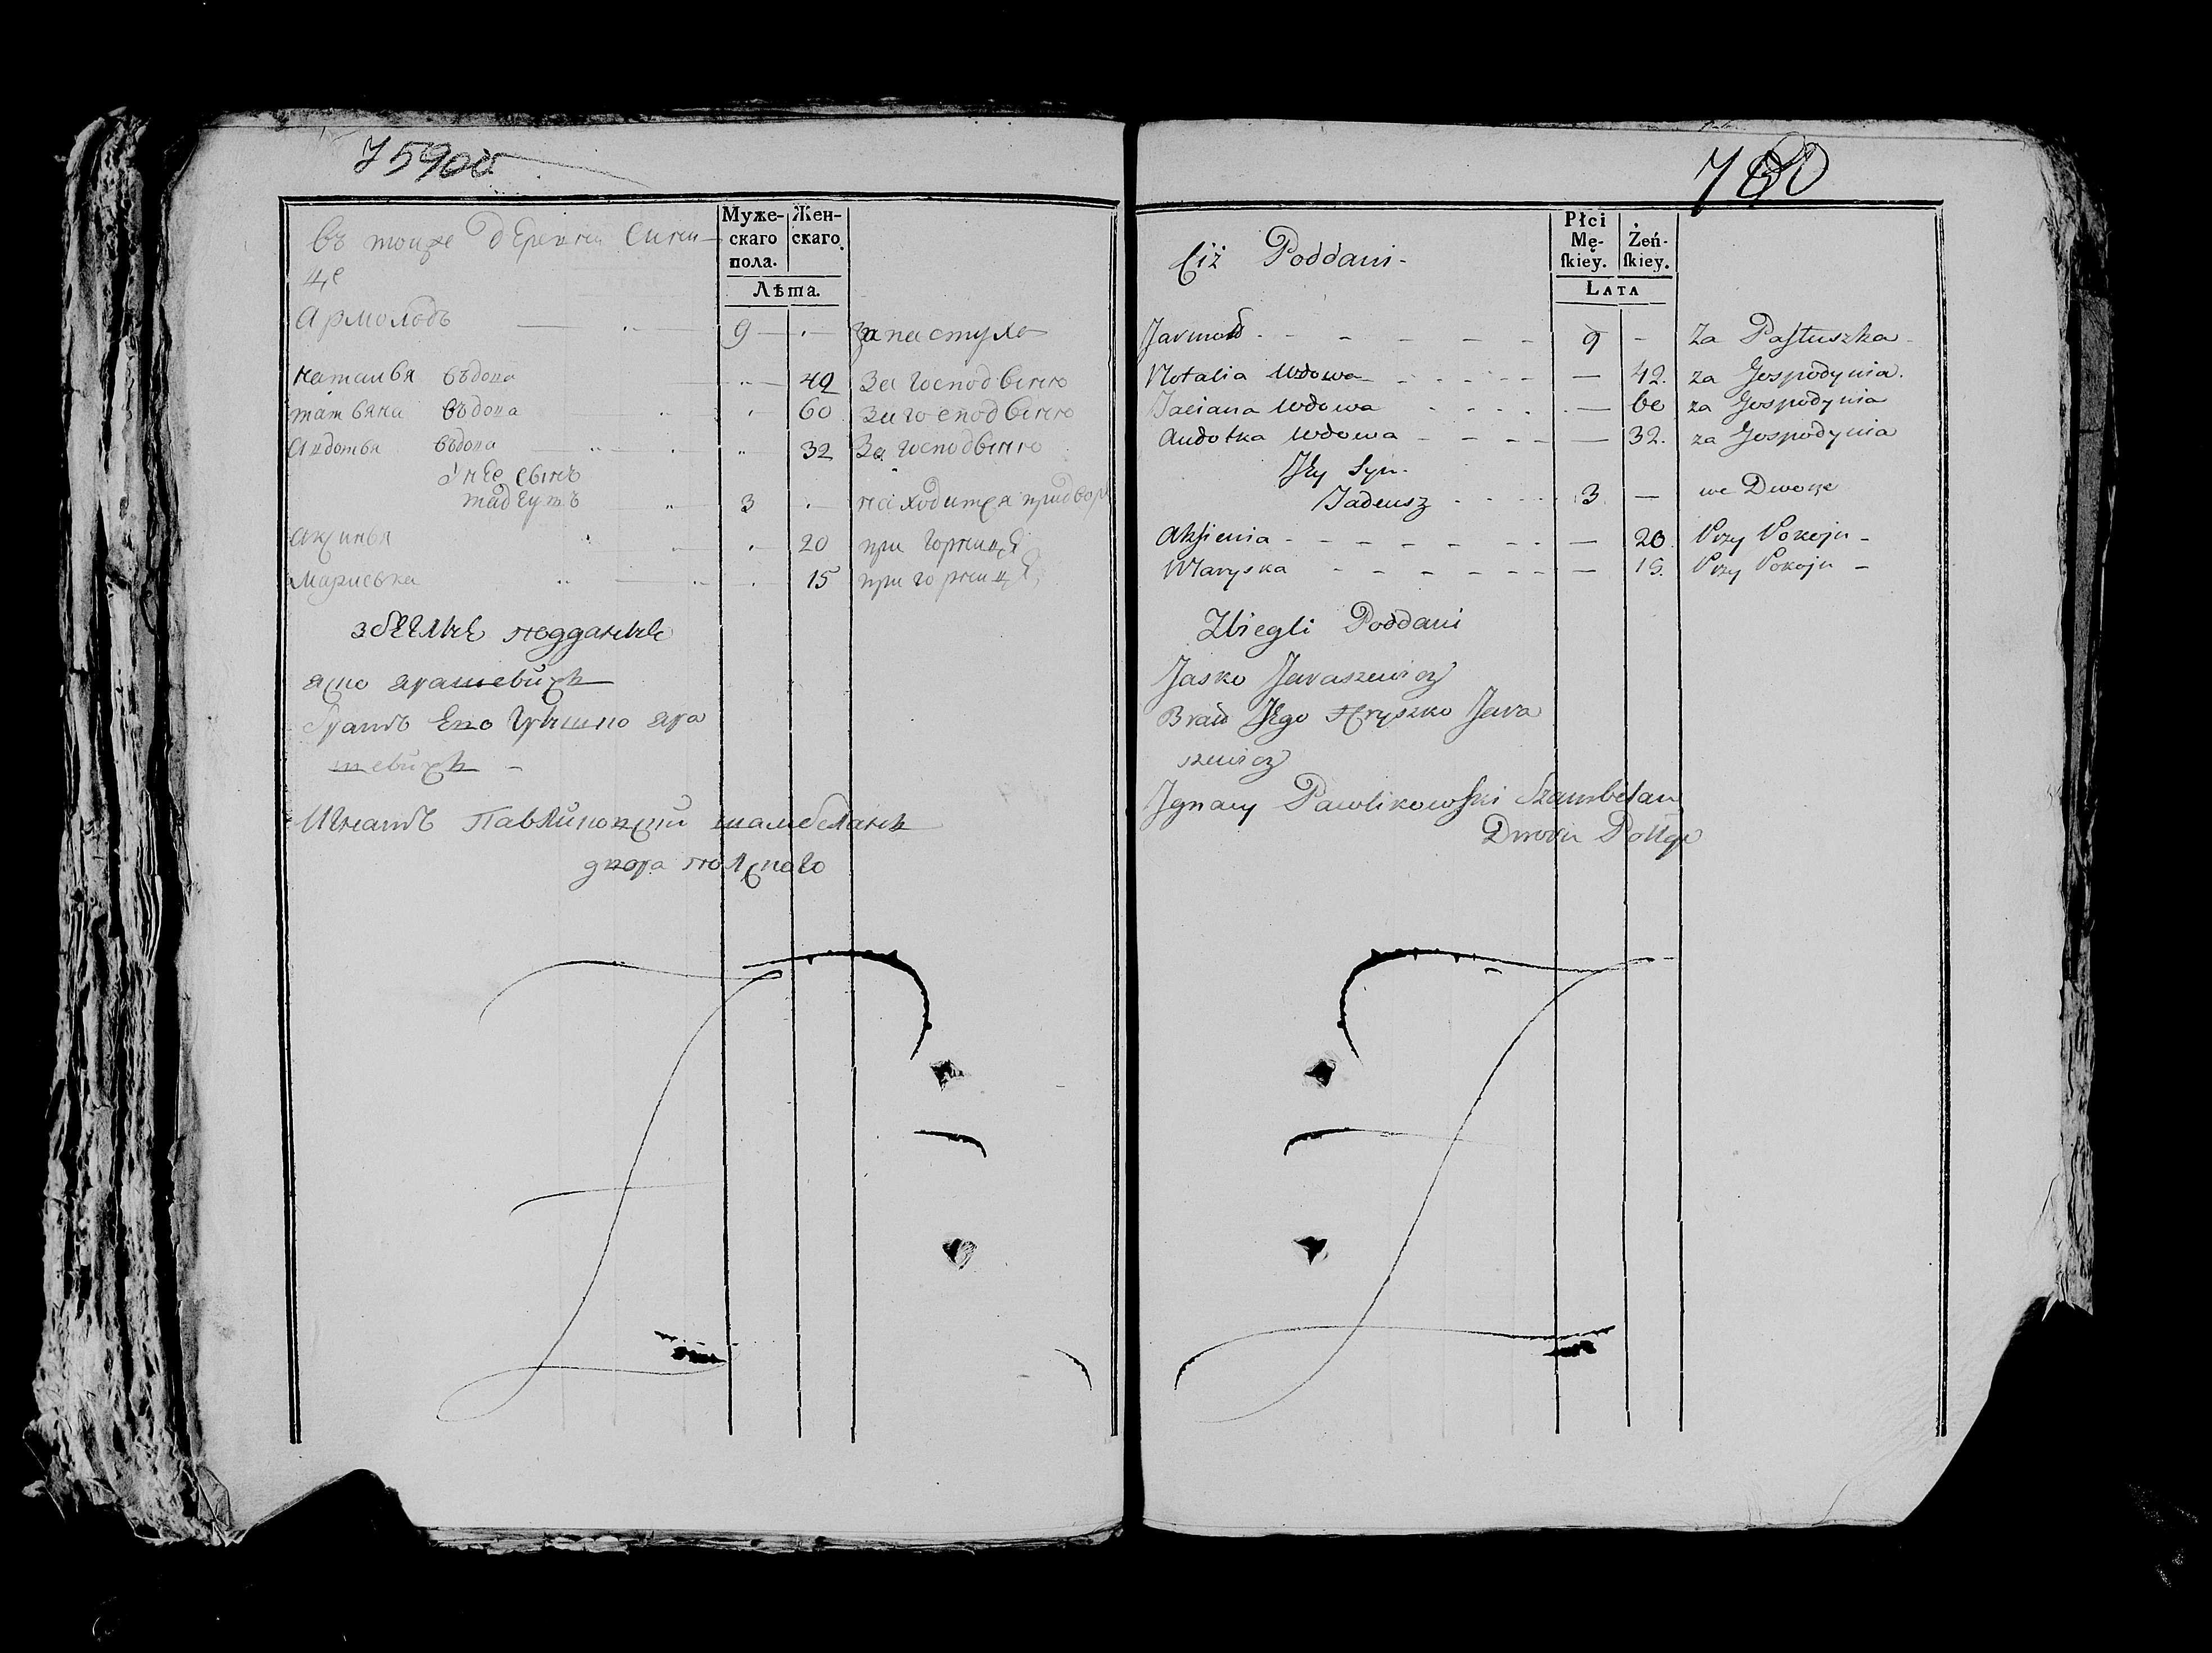 759об
Муже-
скаго
пола.
Жен-
скаго.
Лѣта.
въ тойже дЕревни Сини-
це
Армолодъ 9 за пастуха
наталья въдова 42 За господиню
татьяна въдова 60 За господиню
Авдотья въдова 32 За господиню
у нее сынъ
тадеушъ 3 находится придворѣ
аксинья 20 при горницѣ
мариська 15 при горницѣ
збеглые подданые
яско ярашевичъ
братъ Его Гришко яра
шевичъ
Игнатъ Павликовский шамбелянъ
двора полского
760
Płci
Mę-
ſkiey.
Żeń-
ſkiey.
Lata
Ciż Poddani-
Jarmoł 9 - Za Paſtuszka
Natalia Wdowa 42. za Gospodynia.
Taciana Wdowa 60 za Gospodynia
Audotka Wdowa 32. za Gospodynia
Jey Syn
Tadeusz 3 we Dworze
Akſienia 20 Przy Pokoju -
Maryska 15. Przy Pokoju -
Zbiegli Poddani
Jasko Jaraszewicz
Brat Jego Hryszko Jara
szewicz
Jgnacy Pawlikowſki Szambelan
Dworu Polſgo